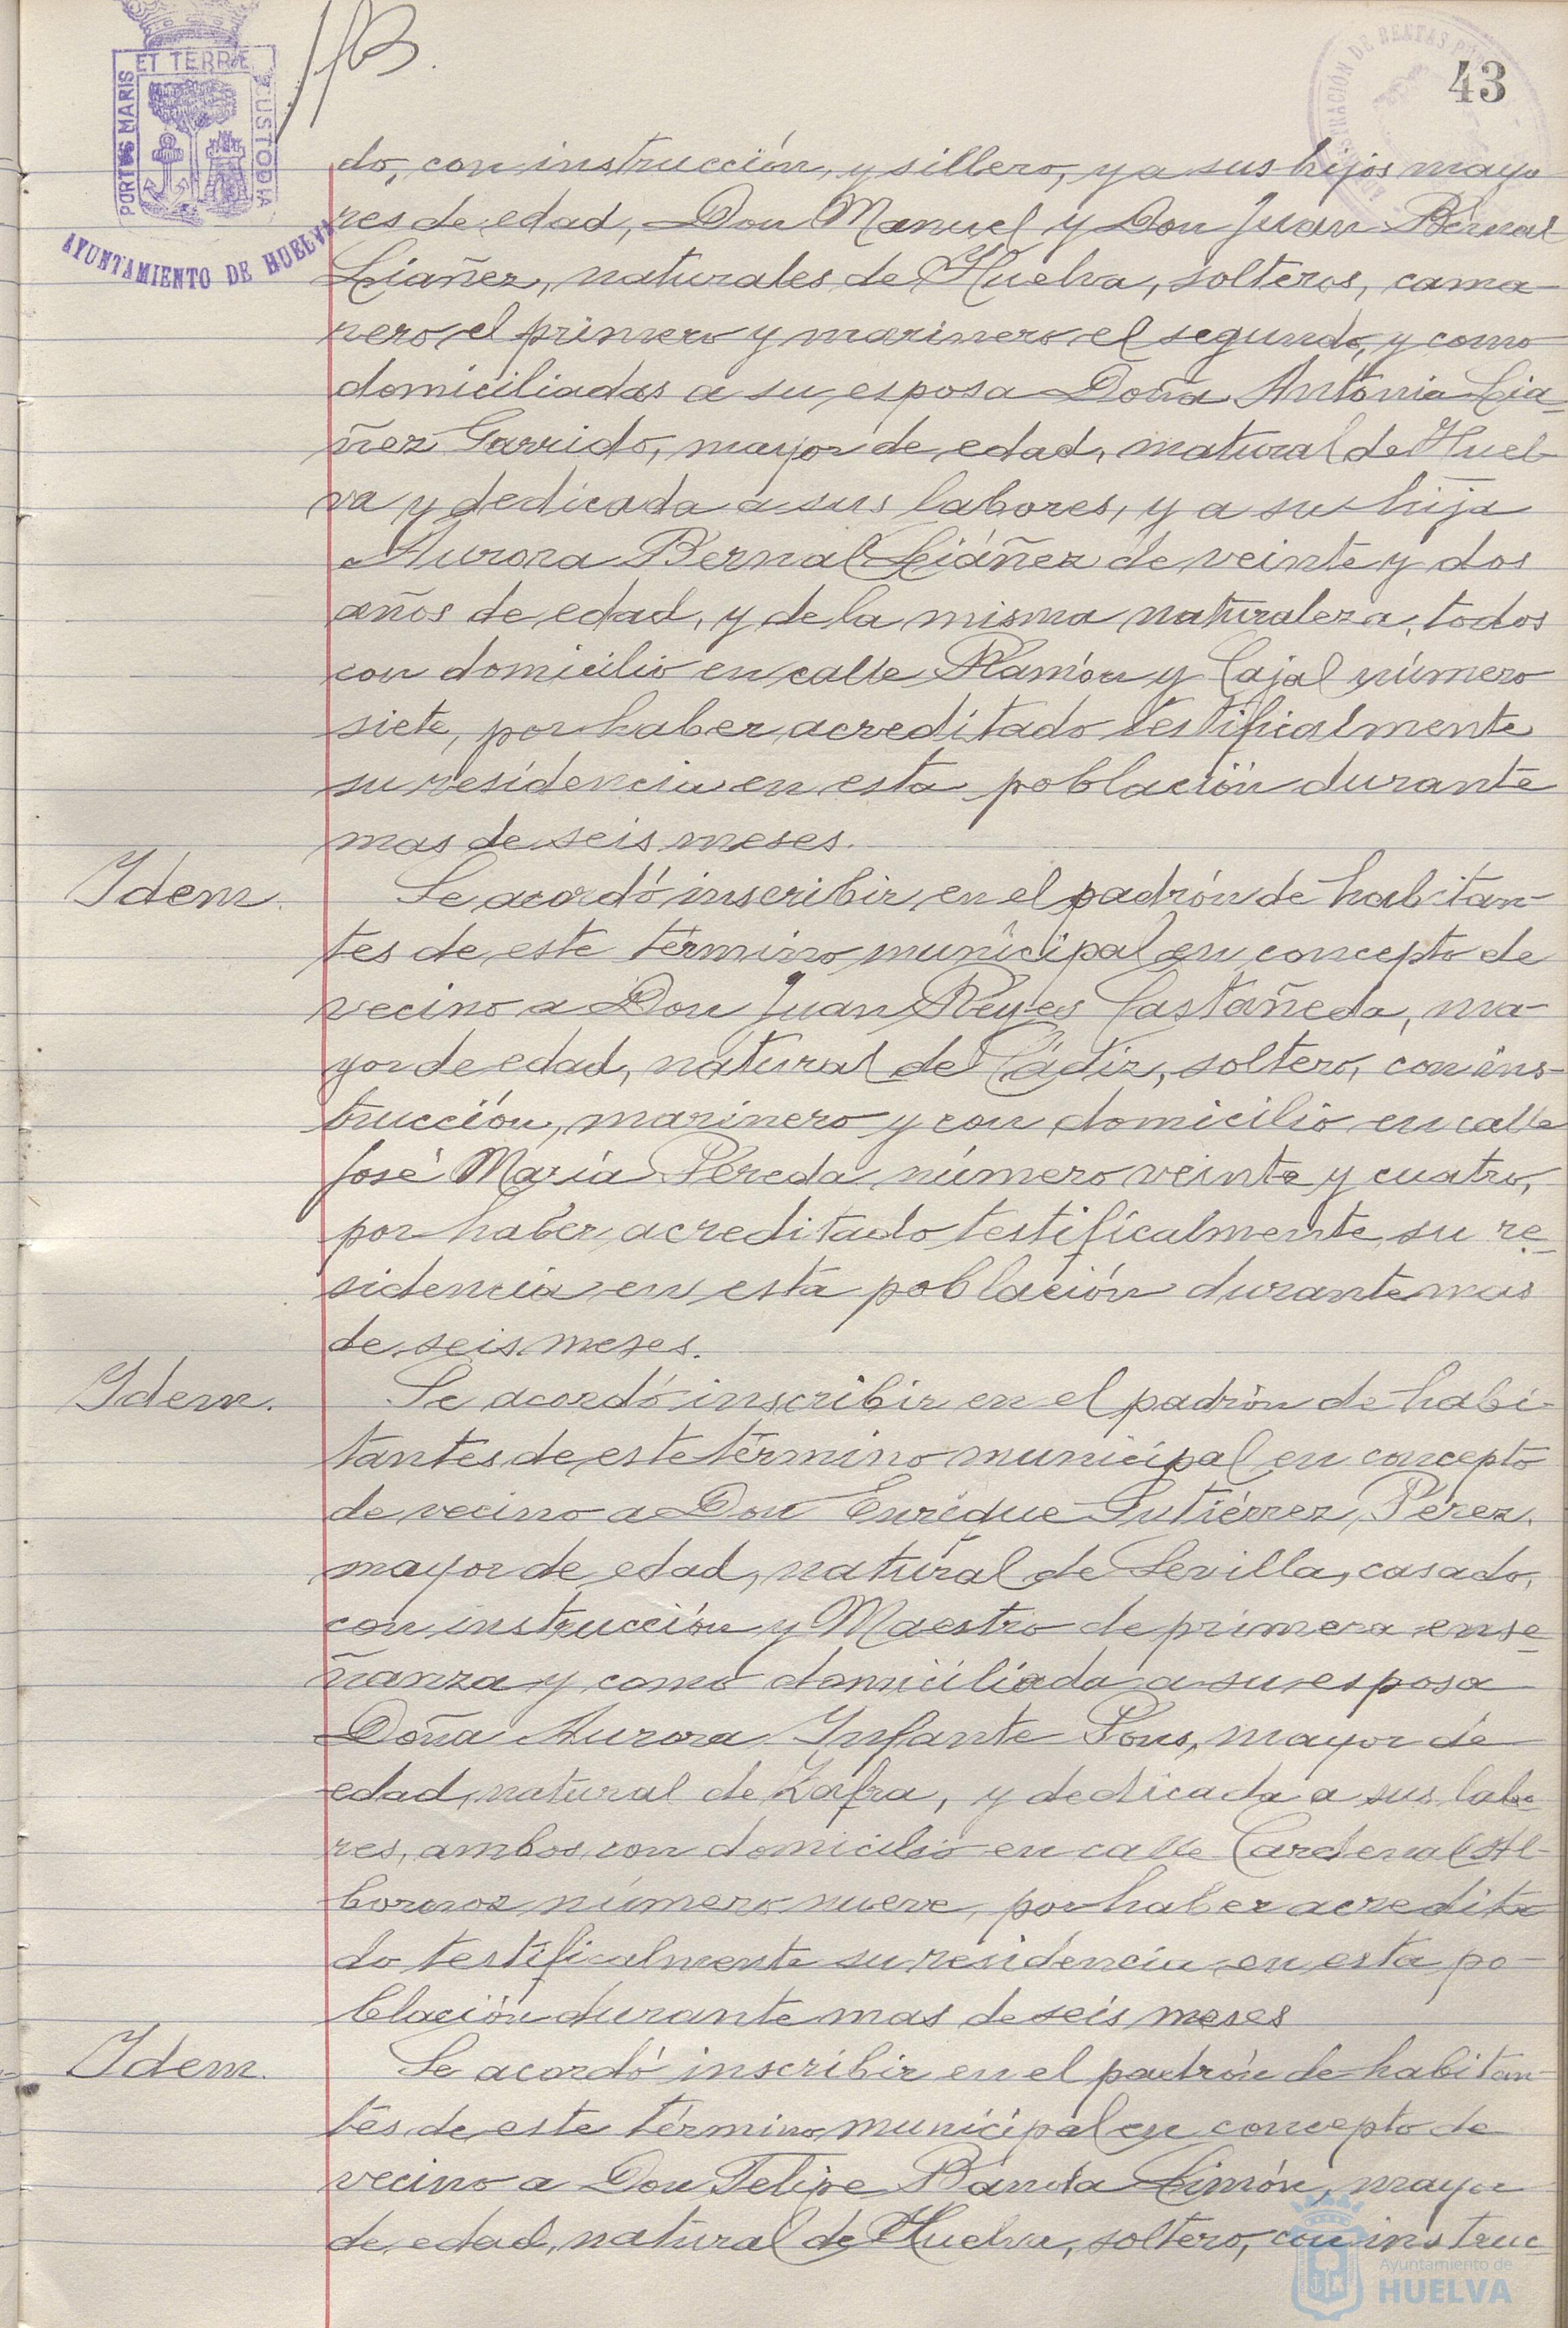 ET TERRÆ
PORTUS MARIS
CUSTODIA
AYUNTAMIENTO DE HUELVA
43
do, con instrucción, y sillero, y a sus hijos mayo-
res de edad, Don Manuel y Don Juan Bernal
Liañez, naturales de Huelva, solteros, cama-
rero el primero y marinero el segundo, y como
domiciliadas a su esposa Doña Antonia Lia-
ñez Garrido, mayor de edad, natural de Huel-
va y dedicada a sus labores, y a su hija
Aurora Bernal Liáñez de veinte y dos
años de edad, y de la misma naturaleza, todos
con domicilio en calle Ramón y Cajal número
siete, por haber acreditado testificalmente
su residencia en esta población durante
mas de seis meses.
Idem. Se acordó inscribir en el padrón de habitan-
tes de este término municipal en concepto de
vecino a Don Juan Reyes Castañeda, ma-
yor de edad, natural de Cádiz, soltero, con ins-
trucción, marinero y con domicilio en calle
José María Pereda número veinte y cuatro,
por haber acreditado testificalmente su re-
sidencia en esta población durante mas
de seis meses.
Idem. Se acordó inscribir en el padrón de habi-
tantes de este término municipal en concepto
de vecino a Don Enrique Gutiérrez Pérez,
mayor de edad, natural de Sevilla, casado,
con instrucción y Maestro de primera ense-
ñanza y como domiciliada a su esposa
Doña Aurora Infante Pons, mayor de
edad, natural de Zafra, y dedicada a sus labo-
res, ambos con domicilio en calle Cardenal Al-
bornoz número nueve, por haber acredita
do testificalmente su residencia en esta po-
blación durante mas de seis meses
Idem. Se acordó inscribir en el padrón de habitan-
tes de este término municipal en concepto de
vecino a Don Felipe Banda Limón, mayor
de edad, natural de Huelva, soltero, con instruc-
Ayuntamiento de
HUELVA